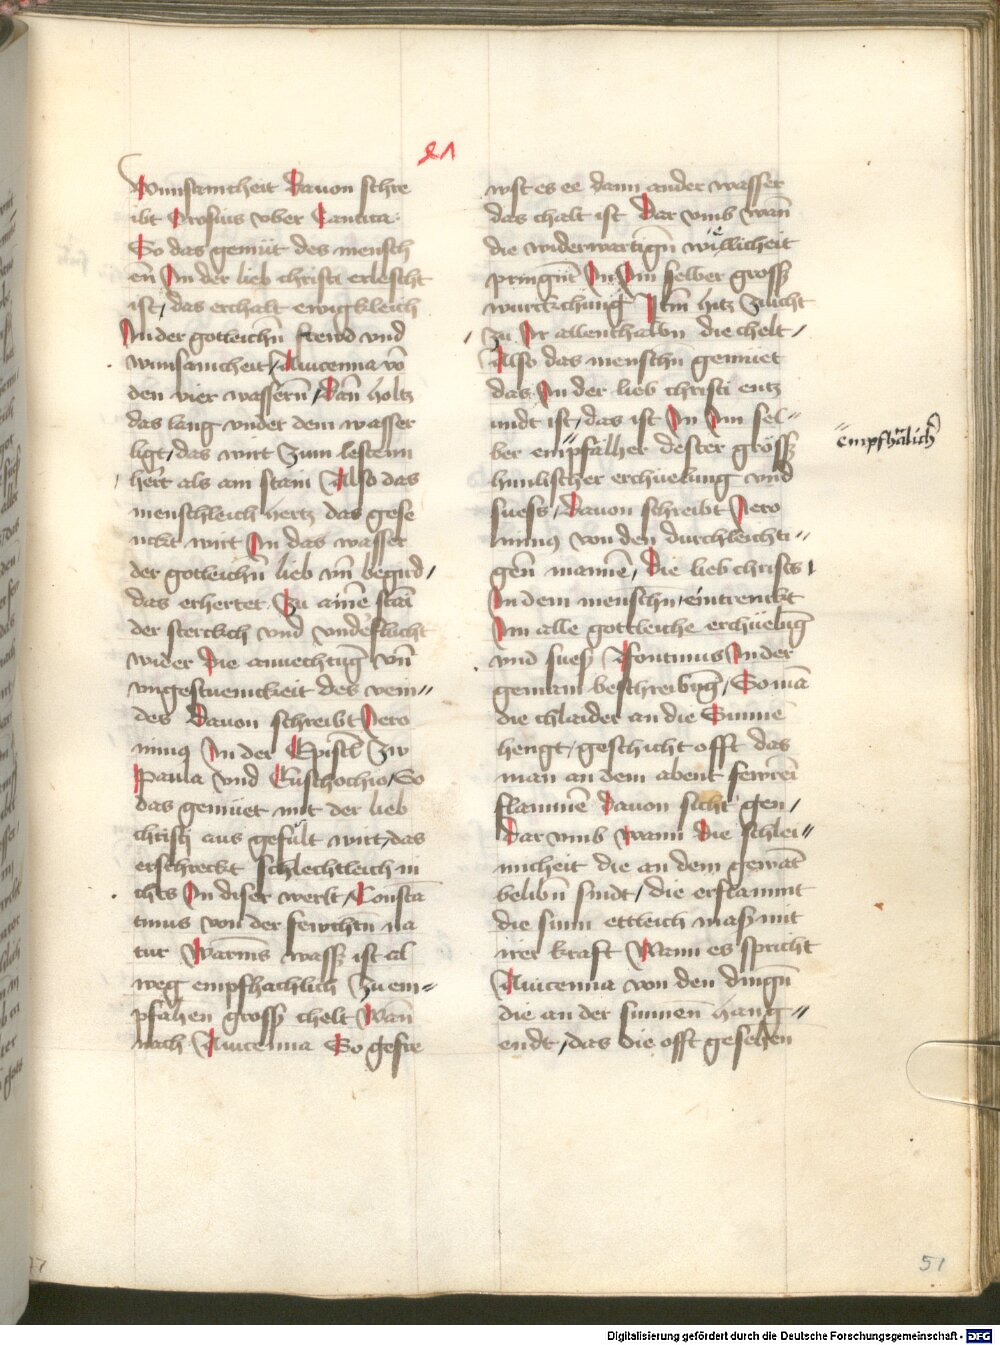 51
wunsamcheit Dauon schre
ibt Crosius vber Cantica
So das gemüt des mensch
en̄ In der lieb christi erlescht
ist, das erchalt ewigkleich
In der gotleichn̄ frewd vnd
wunsamcheit, Auicenna vō
den vier wassern̄, Wan̄ holtz
das lang vnder dem wasser
ligt, das wirt zum lesten in
hert als ain stain Also das
menschleich hertz das gese
nckt wirt In das wasser
der gotleichn̄ lieb vn̄ begird,
das erhertet zu aine stai
der sterckch vnd vnd flucht
wider die anuechtūg vn̄
vngestuemckeit des vein
des Dauon schreibt Iero
nimus In der Epistel zw
Paula vnd Eustochio, So
das gemüet mit der lieb
christi aus gefült wirt, das
erschreckt schlechtleich ni
chts In diser werlt, Constā
tinus von der fewchtn̄ na
tur Warms wass ist al
weg empfhachlich zu em
pfahen gross chelt Wan̄
nach Auicenna So gefre
wst es ee dann ander wasser
das chalt ist Dar vmb wan̄
die widerwartign̄ willicheit
pringnt In Im selber gross
wurckchung Item hitz zeucht
zu Ir allenthalbn̄ die chelt,
Also das menschn̄ gemüet
das In der lieb christi entz
undt ist, das ist In Im sel
ber empfälher dester gröss
himlischer erchüelung vnd
suess, Dauon schreibt Iero
nimus von den durchleichti
gen̄ mannē, Die lieb christs,
In dem menschn̄, eintrenckt
Im alle gottleiche erchüelūg
vnd suess Afontinus In der
gemain beschreibūg, So mā
die chlaider an die Sunne
hengt, geschicht offt das
man an dem abent fewrein
flammē dauon sicht gen,
Dar vmb wann die schlei
micheit die an dem gewāt
belibn̄ sindt, die erflammt
die sunn ettleich mass mit
irer kraft Wann es spricht
Auicenna von den dingn̄
die an der sunnen̄ hang
endt, das die offt gesehen
empfhälich
51
Digitalisierung gefördert durch die Deutsche Forschungsgemeinschaft - DFG